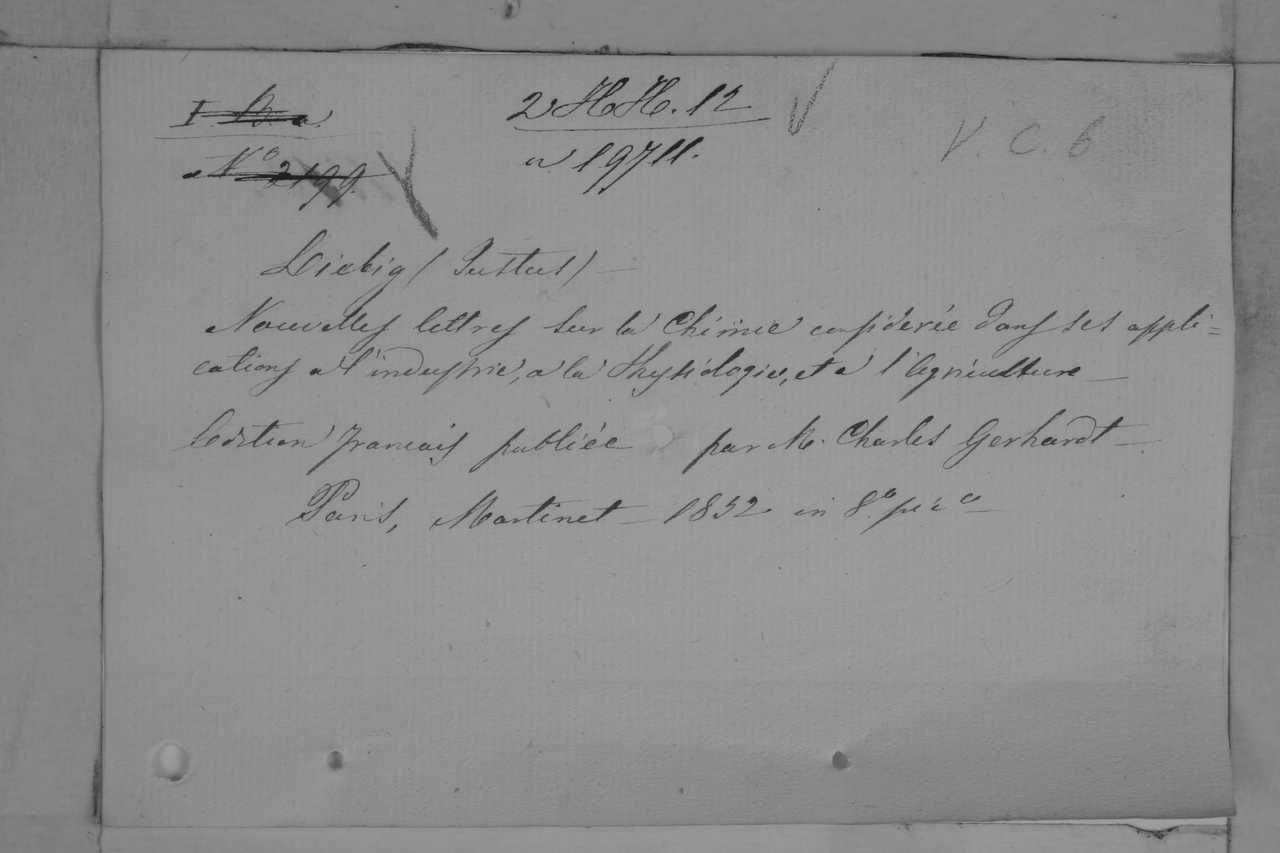 I. B. a. 2 HH. 12 V. C. 6
No 2199. n 19711.
Liebig (Justus) —
Nouvelles lettres sur la Chimie considerée dans ses appli=
cations a l'industrie, a la Physiologie, et a l'Agriculture —
Edition francais publiée par M. Charles Gerhardt —
Paris, Martinet — 1852 in 8.o picco —